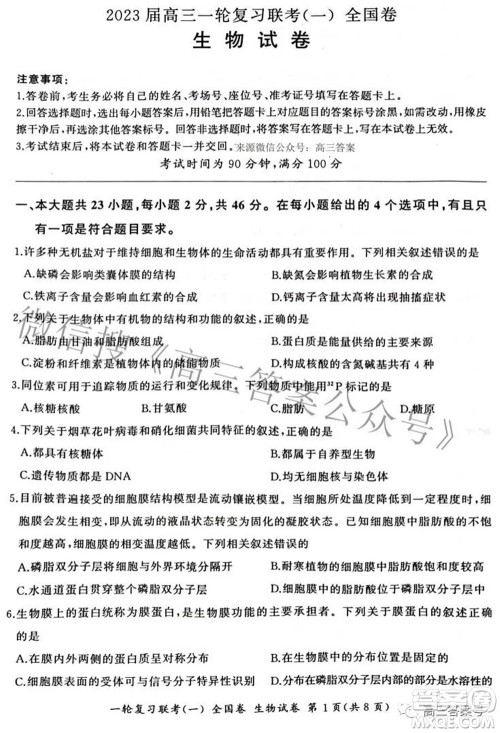 2023 届高三一轮复习联考(一) 全国卷
生 物 试 卷
注意事项:
1.答卷前,考生务必将自己的姓名、考场号、座位号、准考证号填写在答题卡上。
2.回答选择题时,选出每小题答案后,用铅笔把答题卡对应题目的答案标号涂黑。如需改动,用橡皮
擦干净后,再选涂其他答案标号。回答非选择题时,将答案写在答题卡上,写在本试卷上无效。
3.考试结束后,将本试卷和答题卡一并交回。来源微信公众号:高三答案
考试时间为 90 分钟,满分 100 分
一、本大题共 23 小题,每小题 2 分,共 46 分。在每小题给出的 4 个选项中,有且只
有一项是符合题目要求。
1.许多种无机盐对于维持细胞和生物体的生命活动都有重要作用。下列相关叙述错误的是
A.缺磷会影响类囊体膜的结构 B.缺氮会影响植物生长素的合成
C.铁离子含量会影响血红素的合成 D.钙离子含量太高将出现抽搐症状
2.下列关于生物体中有机物的结构和功能的叙述,正确的是
A.脂肪由甘油和脂肪酸组成 B.蛋白质是主要的能源物质
C.淀粉和纤维素均为植物的储能物质 D.构成核酸的含氮碱基共有 4 种
3.同位素可用于追踪物质的运行和变化规律。下列物质能用³²P 标记的是
A.核糖核酸 B.甘氨酸 C.脂肪 D.糖原
4.下列关于烟草花叶病毒和硝化细菌共同特征的叙述,正确的是
A.都含有核酸 B.都属于自养型生物
C.遗传物质都是 DNA D.都无细胞核与染色体
5.目前被普遍接受的细胞膜结构模型是流动镶嵌模型。当细胞所处温度降低到一定程度时,
细胞膜会发生相变,从流动的液晶态转变为固化的凝胶状态。细胞膜中脂肪酸链的不饱和
度越高,细胞膜的相变温度越低。下列相关叙述错误的是
A.磷脂双分子层将细胞与外界环境分隔开 B.耐寒植物的细胞膜中脂肪酸饱和度较高
C.水通道蛋白贯穿整个磷脂双分子层 D.糖蛋白质全部贯穿于磷脂双分子层中
6.生物膜上的蛋白质统称为膜蛋白,它们是生物膜功能的主要承担者。下列关于膜蛋白的叙述,正确
的是
A.膜内外两侧的蛋白质呈对称分布
一轮复习联考(一) 全国卷 生物试卷 第 1 页(共 8 页)
高三答案号
微信搜《高三答案公众号》